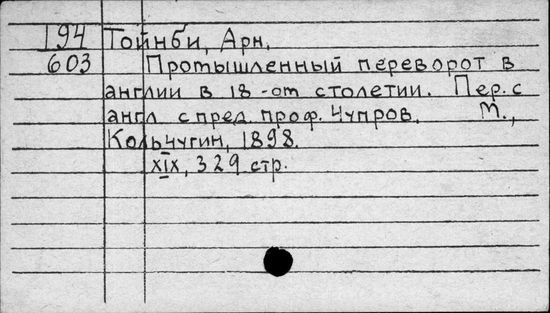 194 Тойнби, Арн,
603 Промышленный переворот в
англии в 18-ом столетии. Пер. с
англ с пред. проф. Чупров, М.,
Кольчугин, 1898.
XIX, 329 стр.